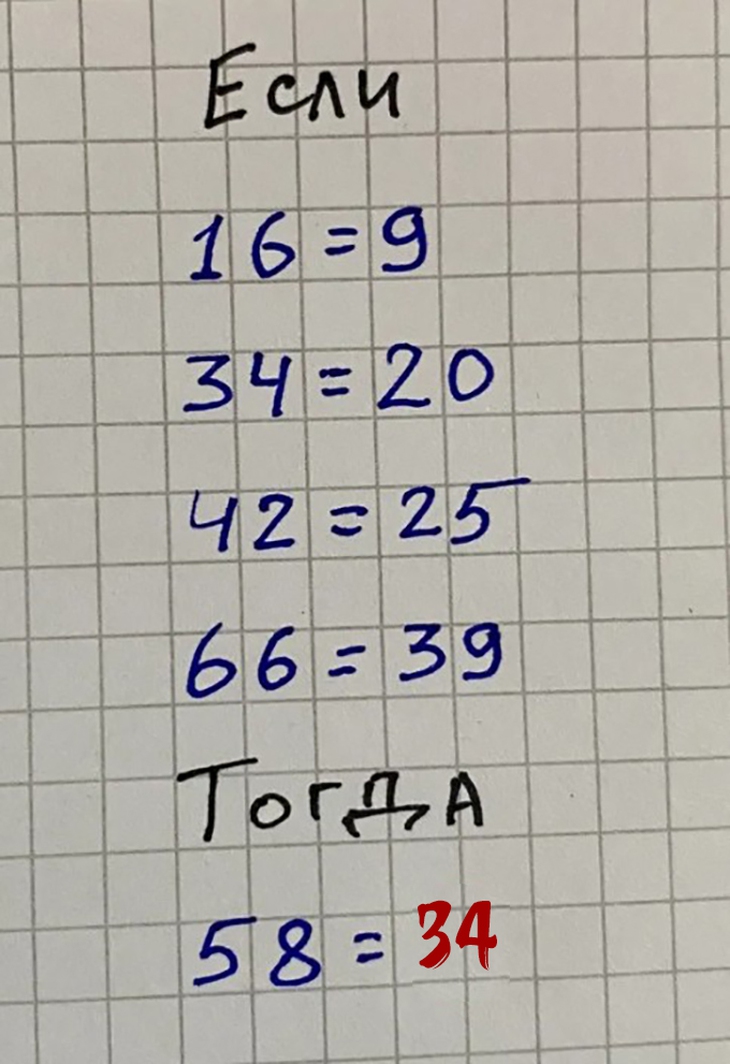 Если
16 = 9
34 = 20
42 = 25
66 = 39
Тогда
58 = 34